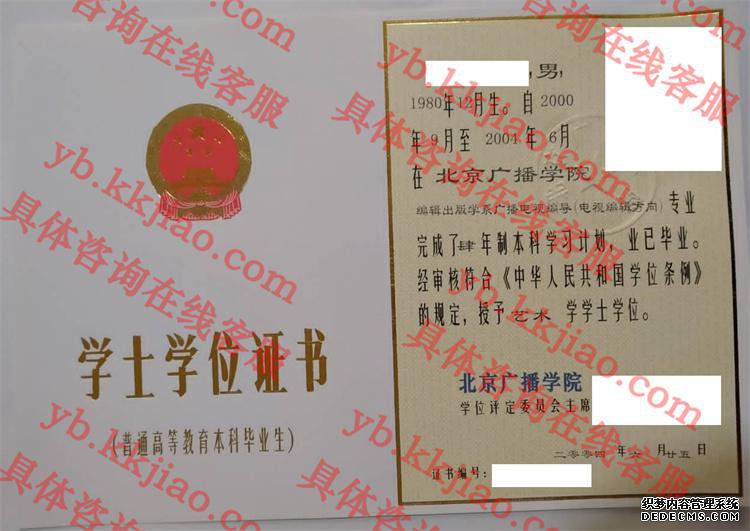 学士学位证书
(普通高等教育本科毕业生)
,男,
1980年12月生。自 2000
年 9月至 2004 年 6月
在 北京广播学院
编辑出版学系广播电视编导(电视编辑方向) 专业
完成了肆年制本科学习计划,业已毕业。
经审核符合《中华人民共和国学位条例》
的规定,授予 艺术 学学士学位。
北京广播学院
学位评定委员会主席
二零零四 年 六 月 廿五 日
证书编号:
具体咨询在线客服
yb.kkjiao.com
具体咨询在线客服
yb.kkjiao.com
具体咨询在线客服
yb.kkjiao.com
具体咨询在线客服
yb.kkjiao.com
具体咨询在线客服
yb.kkjiao.com
具体咨询在线客服
织梦内容管理系统
DEDECMS.COM